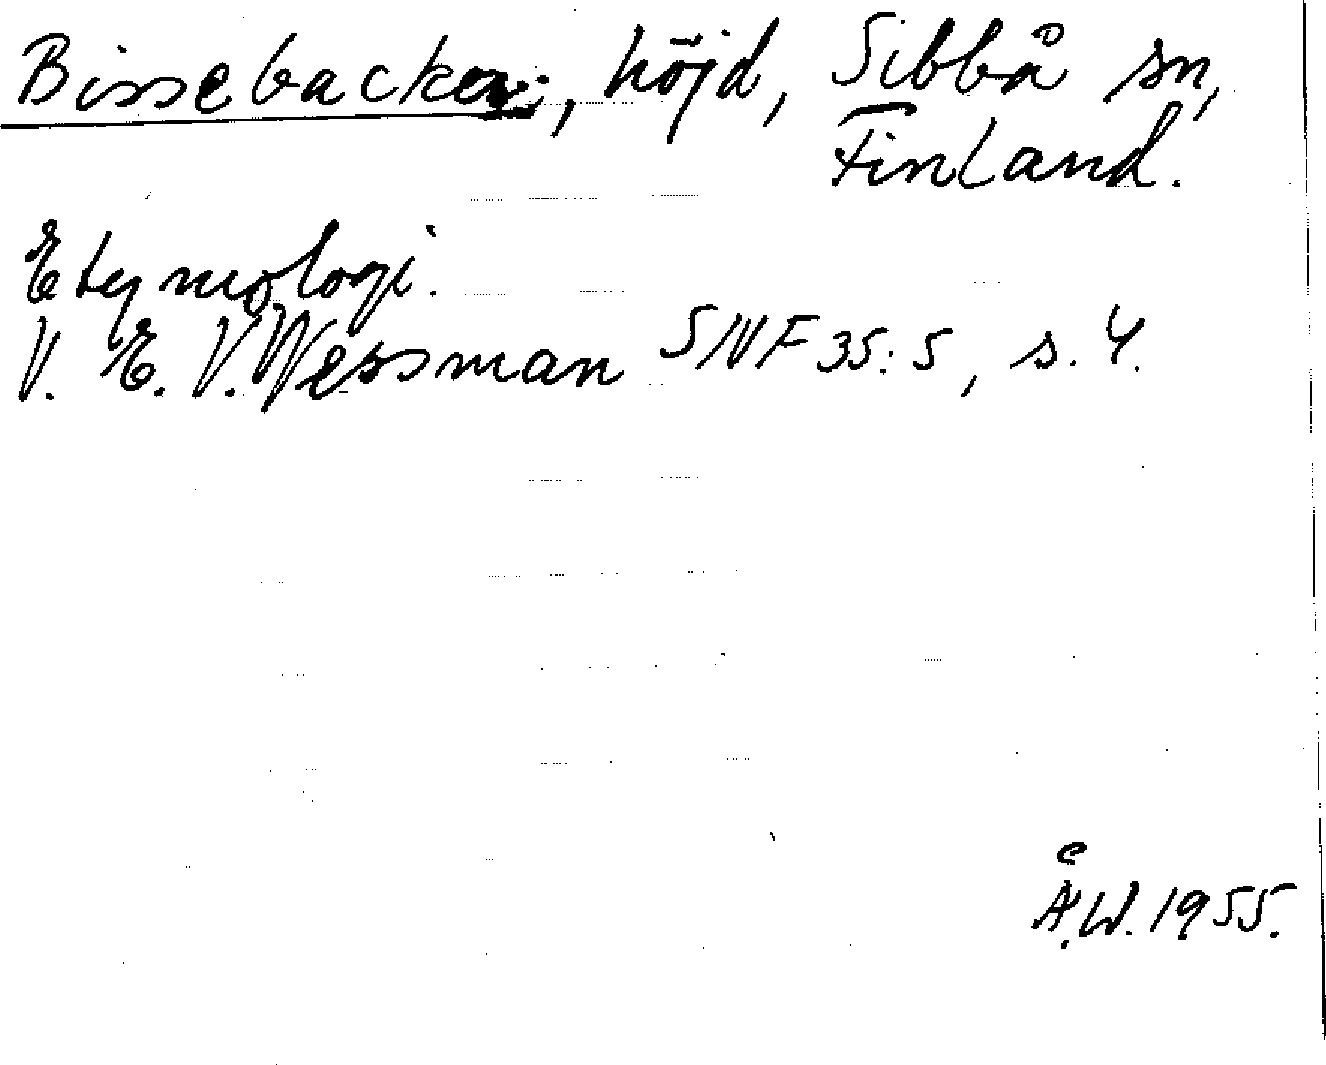 Bissebacken, höjd, Sibbå sn,
Finland.
Etymologi.
V. E. V. Wessman SNF 35:5, s. 4.
Å.W. 1955.